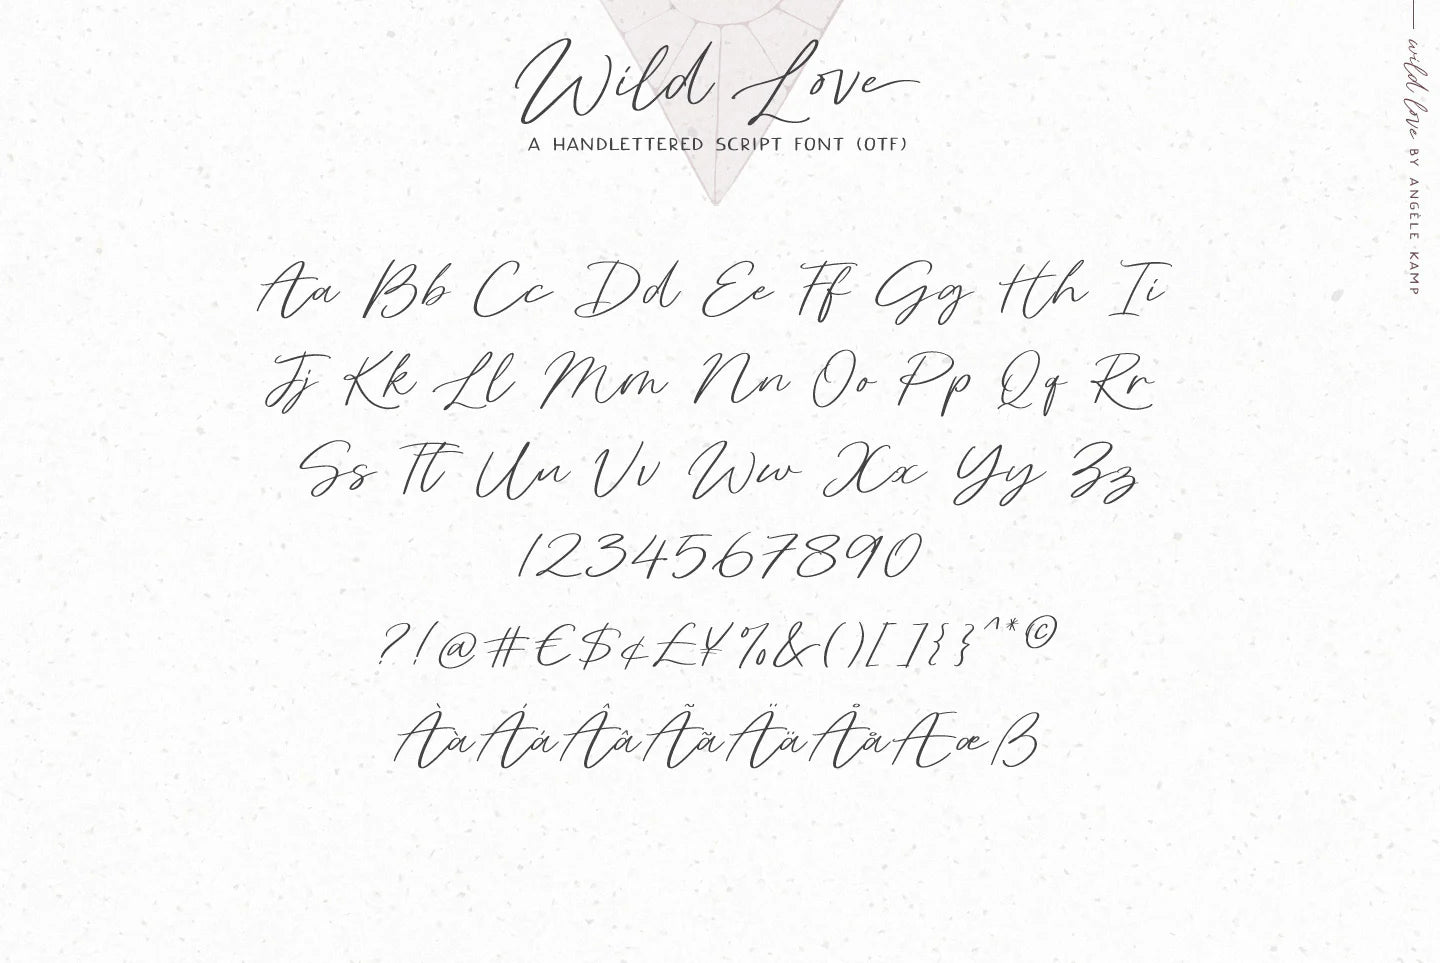 Wild Love
A HANDLETTERED SCRIPT FONT (OTF)
wild love BY ANGÈLE KAMP
Aa Bb Cc Dd Ee Ff Gg Hh Ii
Jj Kk Ll Mm Nn Oo Pp Qq Rr
Ss Tt Uu Vv Ww Xx Yy Zz
1234567890
?!@#€$¢£¥%&()[]{}^*©
ÀàÁáÂâÃãÄäÅåÆæß